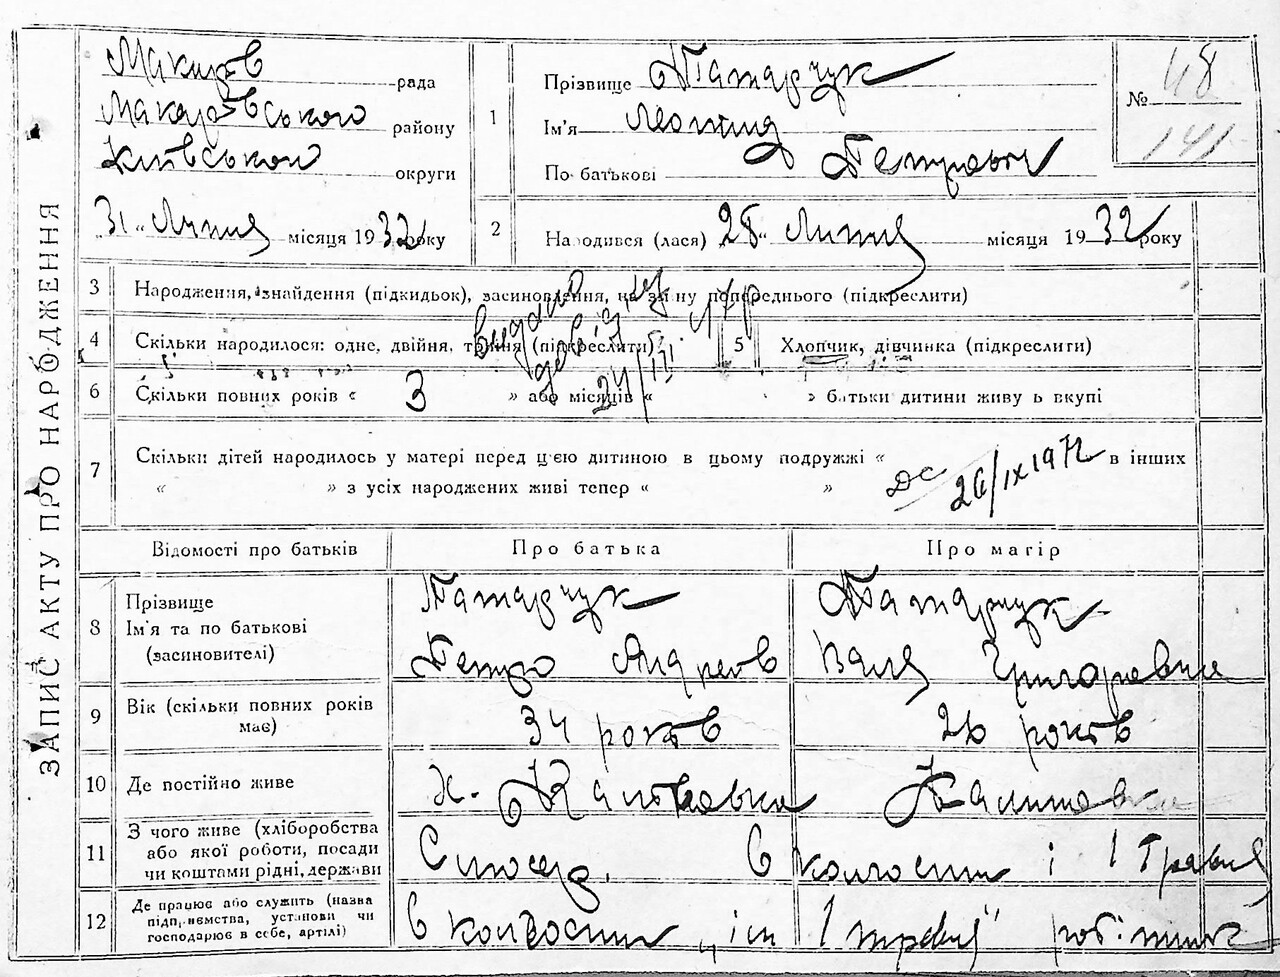 ЗАПИС АКТУ ПРО НАРОДЖЕННЯ
Макарів рада
Макарівського району
Київської округи
31 " Липня місяця 1932 року
1
Прізвище Татарчук
Ім'я Леонид
По батькові Петрович
№ 48
141
2
Народився (лася) 28 " Липня місяця 1932 року
3 Народження, знайдення (підкидьок), засиновлення, на зміну попереднього (підкреслити)
4 Скільки народилося: одне, двійня, трийня (підкреслити)
5 Хлопчик, дівчинка (підкреслити)
видано
24/III 47р
6 Скільки повних років « 3 » або місяців « » батьки дитини живуть вкупі
7 Скільки дітей народилось у матері перед цією дитиною в цьому подружжі « в інших
« » з усіх народжених живі тепер « »
26/IX 1972
Відомості про батьків Про батька Про матір
8 Прізвище Татарчук Татарчук
Ім'я та по батькові Петро Андреєв Валя Григоревна
(засиновителі)
9 Вік (скільки повних років має) 34 років 26 років
10 Де постійно живе
11 З чого живе (хліборобства
або якої роботи, посади
чи коштами рідні, держави
в колгоспи і 1 Травня
12 Де працює або служить (назва
підприємства, установи чи
господарює в себе, артілі)
в колгоспи " ім 1 травня" робітник